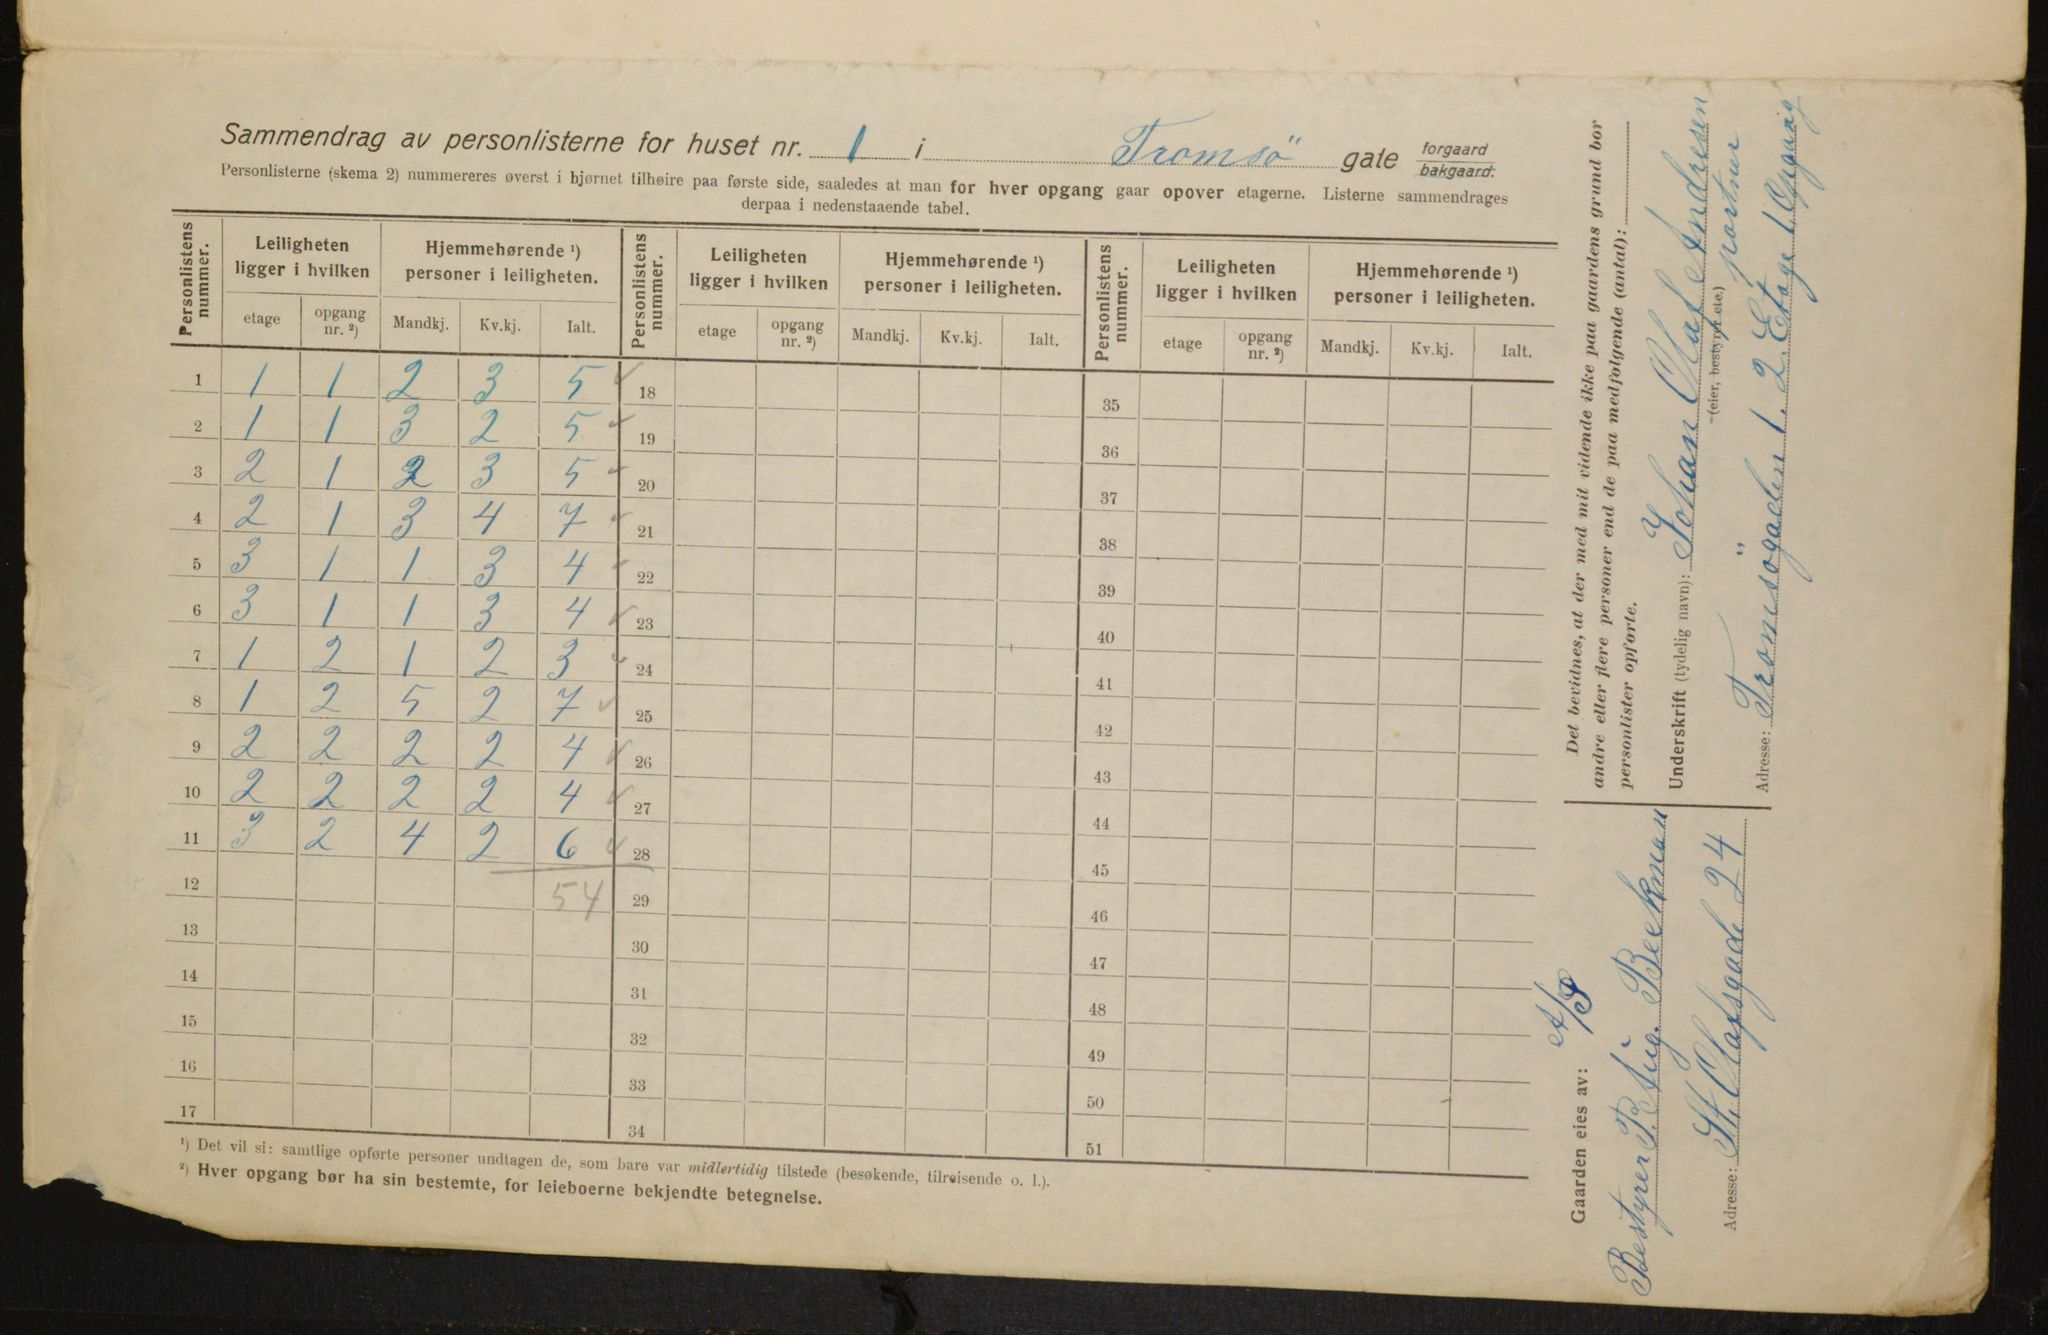 Sammendrag av personlisterne for huset nr. 1 i Tromsö gate forgaard
bakgaard.
Personlisterne (skema 2) nummereres øverst i hjørnet tilhøire paa første side, saaledes at man for hver opgang gaar opover etagerne. Listerne sammendrages
derpaa i nedenstaaende tabel.
Personlistens nummer. Leiligheten ligger i hvilken Hjemmehørende ¹) personer i leiligheten. Personlistens nummer. Leiligheten ligger i hvilken Hjemmehørende ¹) personer i leiligheten. Personlistens nummer. Leiligheten ligger i hvilken Hjemmehørende ¹) personer i leiligheten.
etage opgang nr. ²) Mandkj. Kv.kj. Ialt. etage opgang nr. ²) Mandkj. Kv.kj. Ialt. etage opgang nr. ²) Mandkj. Kv.kj. Ialt.
1 1 1 2 3 5 ✓ 18 35
2 1 1 3 2 5 ✓ 19 36
3 2 1 2 3 5 ✓ 20 37
4 2 1 3 4 7 ✓ 21 38
5 3 1 1 3 4 ✓ 22 39
6 3 1 1 3 4 ✓ 23 40
7 1 2 1 2 3 ✓ 24 41
8 1 2 5 2 7 ✓ 25 42
9 2 2 2 2 4 ✓ 26 43
10 2 2 2 2 4 ✓ 27 44
11 3 2 4 2 6 ✓ 28 45
12 54 29 46
13 30 47
14 31 48
15 32 49
16 33 50
17 34 51
¹) Det vil si: samtlige opførte personer undtagen de, som bare var midlertidig tilstede (besøkende, tilreisende o. l.).
²) Hver opgang bør ha sin bestemte, for leieboerne bekjendte betegnelse.
Det bevidnes, at der med mit vidende ikke paa gaardens grund bor
andre eller flere personer end de paa medfølgende (antal):
personlister opførte.
Underskrift (tydelig navn): Johan Olaf Andresen
(eier, bestyrer etc.) portner
Adresse: Tromsögaden 1. 2 Etage 1 Opgang
Gaarden eies av: A/S
Bestyrer P. Aug. Beekman
Adresse: St. Olafsgade 24